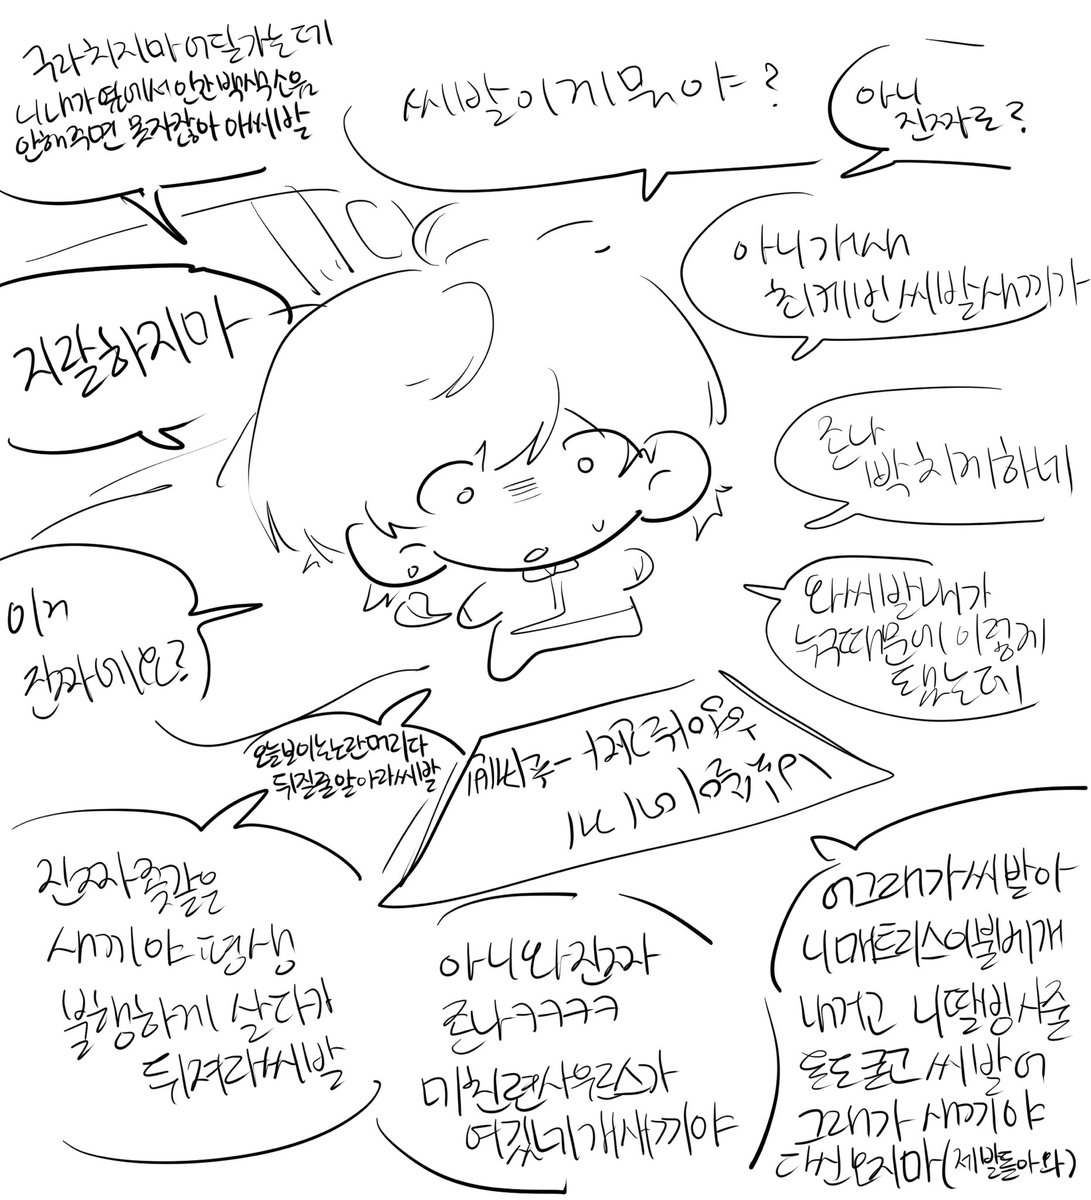 구라치지마 어딜가는데
니 내가 옆에서 인간 백색소음
안해주면 못자잖아 아씨발
씨발이게뭐야?
아니
진짜로?
아니개새
최케빈씨발새끼가
지랄하지마
존나
빡치게하네
이거
진짜예요?
와씨발내가
누구때문에이렇게
됐는데
오늘보이는노란머리다
뒤질줄알아라씨발
진짜좆같은
새끼야평생
불행하게 살다가
뒤져라씨발
아니와진짜
존나ㅋㅋㅋㅋ
미친련사우르스가
여깄네개새끼야
어그래가씨발아
니매트리스이불베개
내꺼고 니딸빙사줄
돈도굳고 씨발어
그래가 새끼야
다신오지마(제발돌아와)